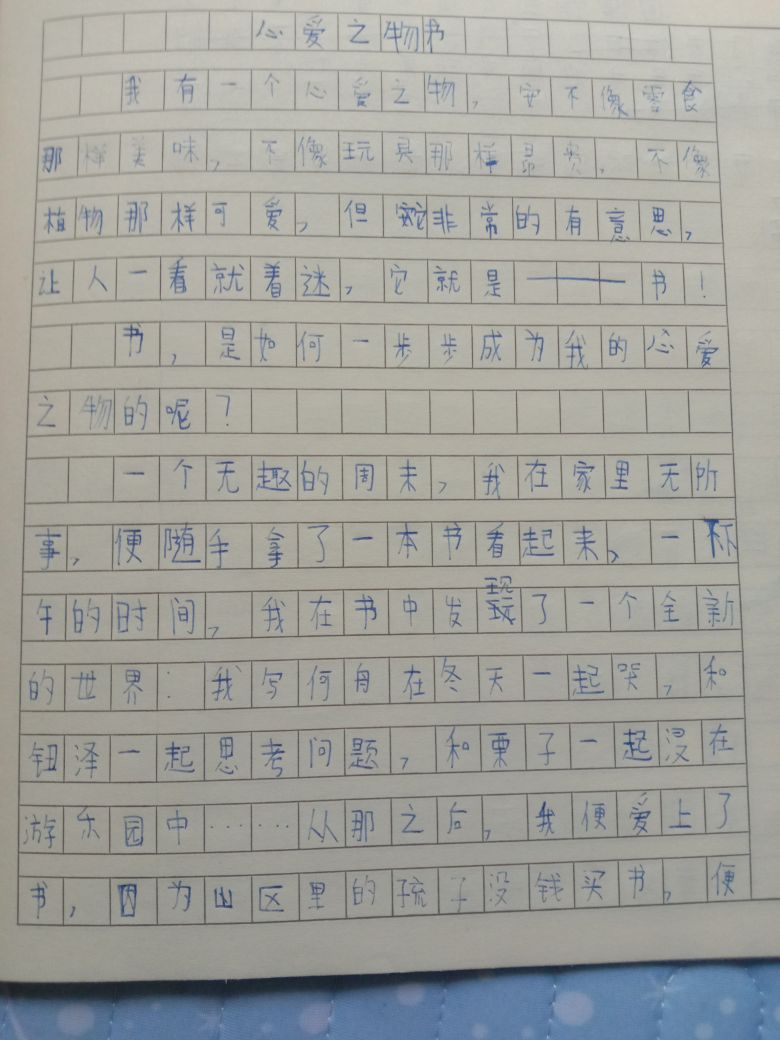 心爱之物书
我有一个心爱之物，它不像零食
那样美味，不像玩具那样昂贵，不像
植物那样可爱，但它非常的有意思，
让人一看就着迷，它就是———书！
书，是如何一步步成为我的心爱
之物的呢？
一个无趣的周末，我在家里无所
事，便随手拿了一本书看起来，一下
午的时间，我在书中发现了一个全新
的世界：我写何舟在冬天一起哭，和
钮泽一起思考问题，和栗子一起浸在
游乐园中……从那之后，我便爱上了
书，因为山区里的孩子没钱买书，便